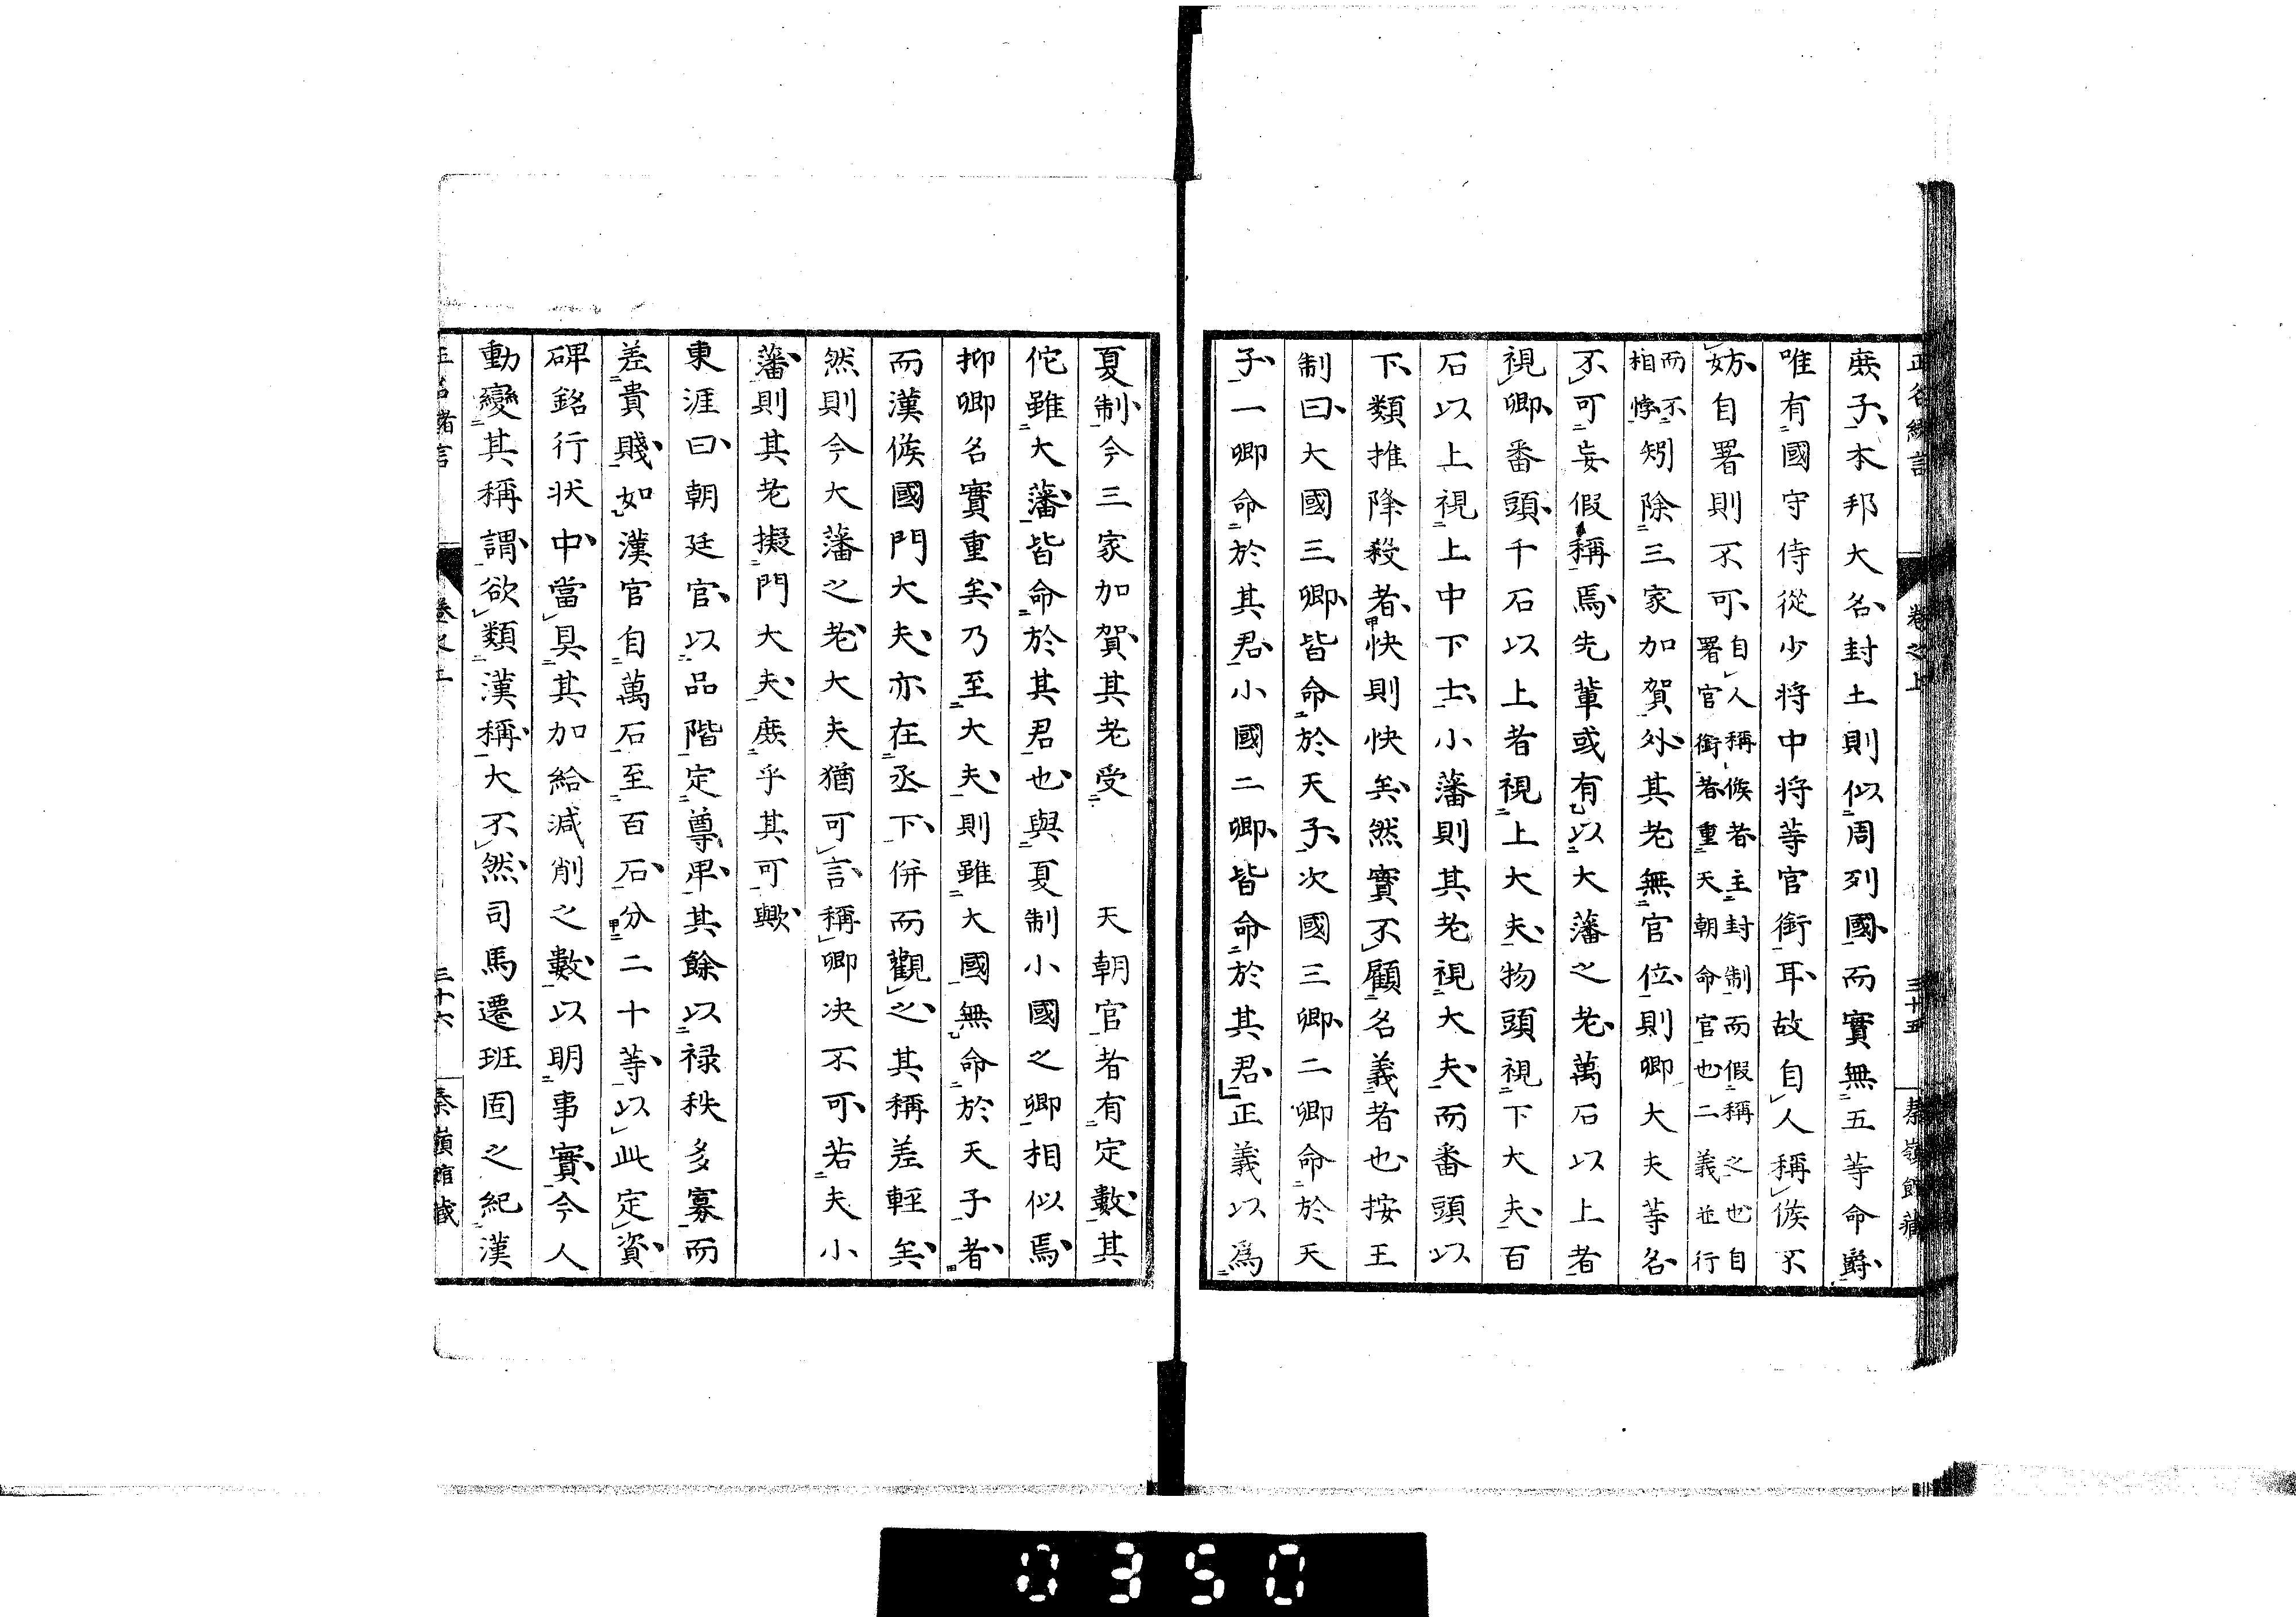 正名緒言 卷之上 三十五
庶子、本邦大名、封土則似周列國、而實無五等命爵、
唯有國守侍從少將中將等官銜耳、故自人稱侯不
妨、自署則不可、自人稱侯者主封制而假稱之也自署官銜者重天朝命官也二義並行
而不相悖矧除三家加賀外、其老無官位、則卿大夫等名、
不可妄假稱焉、先輩或有以大藩之老、萬石以上者
視卿、番頭、千石以上者視上大夫、物頭視下大夫、百
石以上視上中下士、小藩則其老視大夫、而番頭以
下、類推降殺者、快則快矣、然實不顧名義者也、按王
制曰、大國三卿、皆命於天子、次國三卿、二卿命於天
子、一卿命於其君、小國二卿、皆命於其君、正義以爲
夏制、今三家加賀、其老受 天朝官者有定數、其
佗雖大藩、皆命於其君也、與夏制小國之卿相似焉、
抑卿名實重矣、乃至大夫、則雖大國無命於天子者、
而漢侯國門大夫、亦在丞下、併而觀之、其稱差輕矣、
然則今大藩之老、大夫猶可言、稱卿决不可、若夫小
藩、則其老擬門大夫、庶乎其可歟、
東涯曰、朝廷官、以品階定尊卑、其餘以祿秩多寡而
差貴賤、如漢官自萬石至百石、分二十等、以此定資、
碑銘行狀中、當具其加給減削之數、以明事實、今人
動變其稱謂、欲類漢稱、大不然、司馬遷班固之紀漢
卷之上 三十六